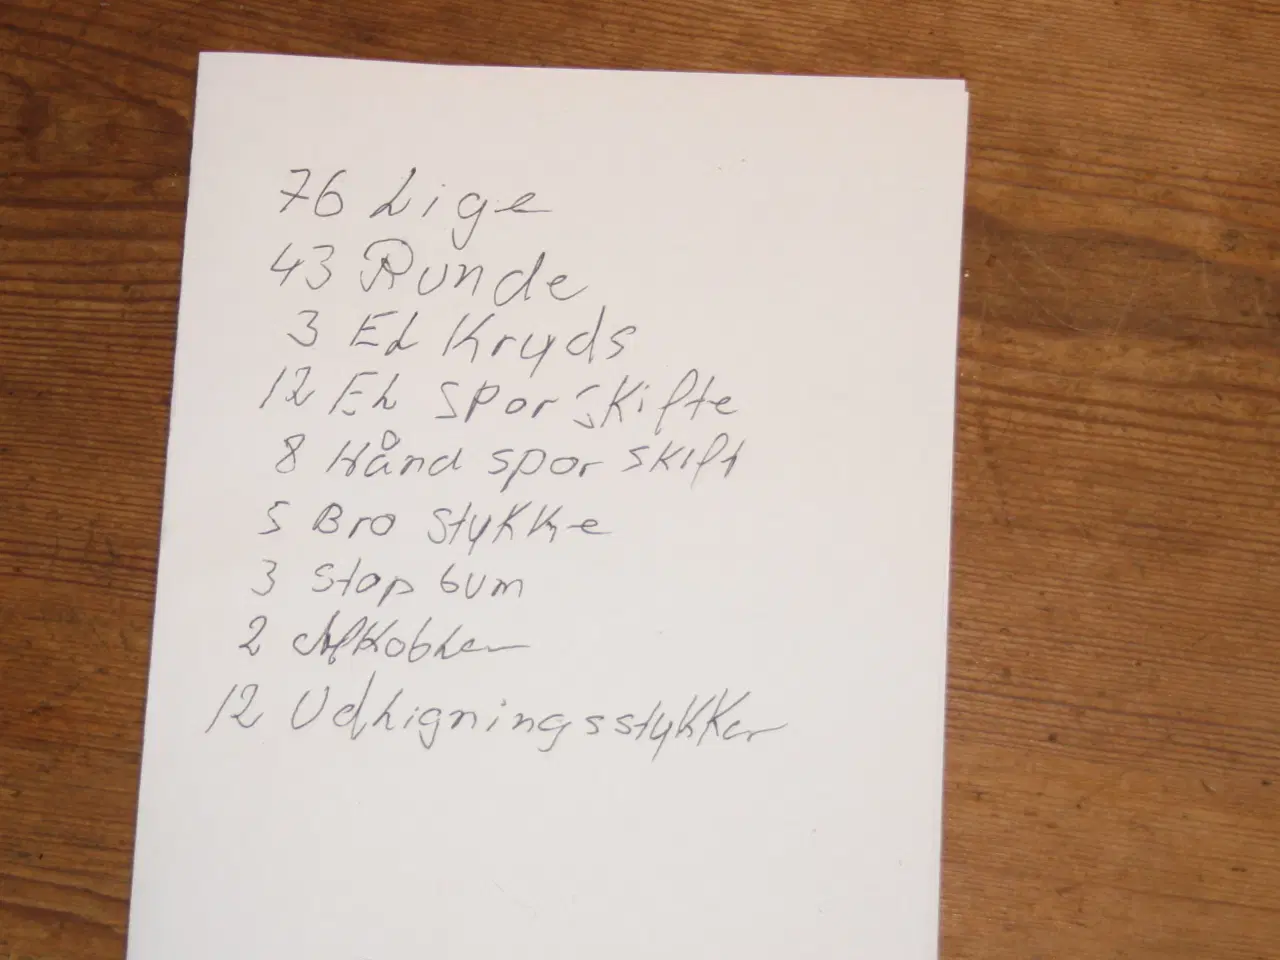 76 Lige
43 Runde
3 EL Kryds
12 EL Spor Skifte
8 Hånd spor skift
5 Bro stykke
3 Stop bum
2 Afkobler
12 Udligningsstykker